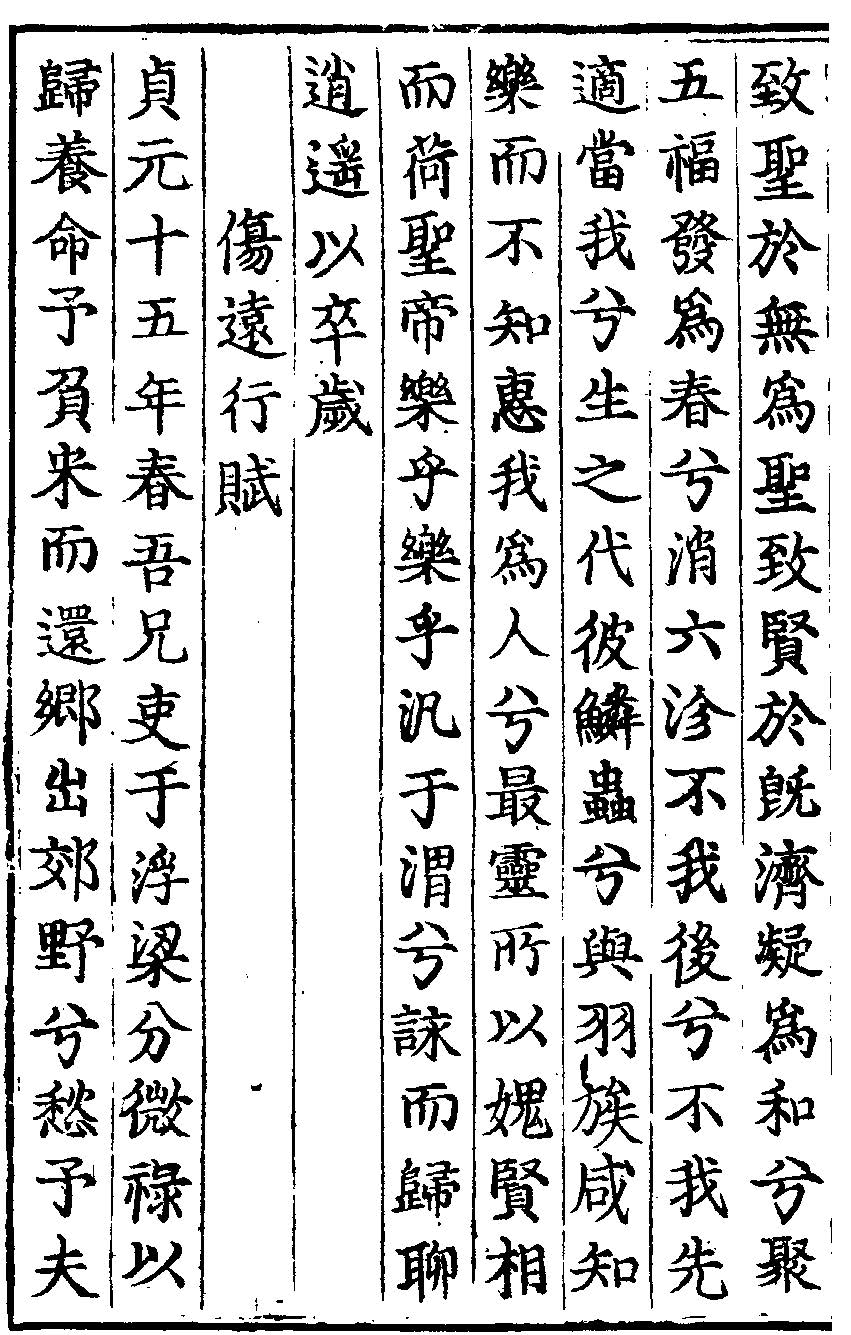 致聖於無爲聖致賢於旣濟凝爲和兮聚
五福發爲春兮消六沴不我後兮不我先
適當我兮生之代彼鱗蟲兮與羽族咸知
樂而不知惠我爲人兮最靈所以媿賢相
而荷聖帝樂乎樂乎汎于渭兮詠而歸聊
逍遥以卒歲
傷遠行賦
貞元十五年春吾兄吏于浮梁分微祿以
歸養命予負米而還鄉出郊野兮愁予夫